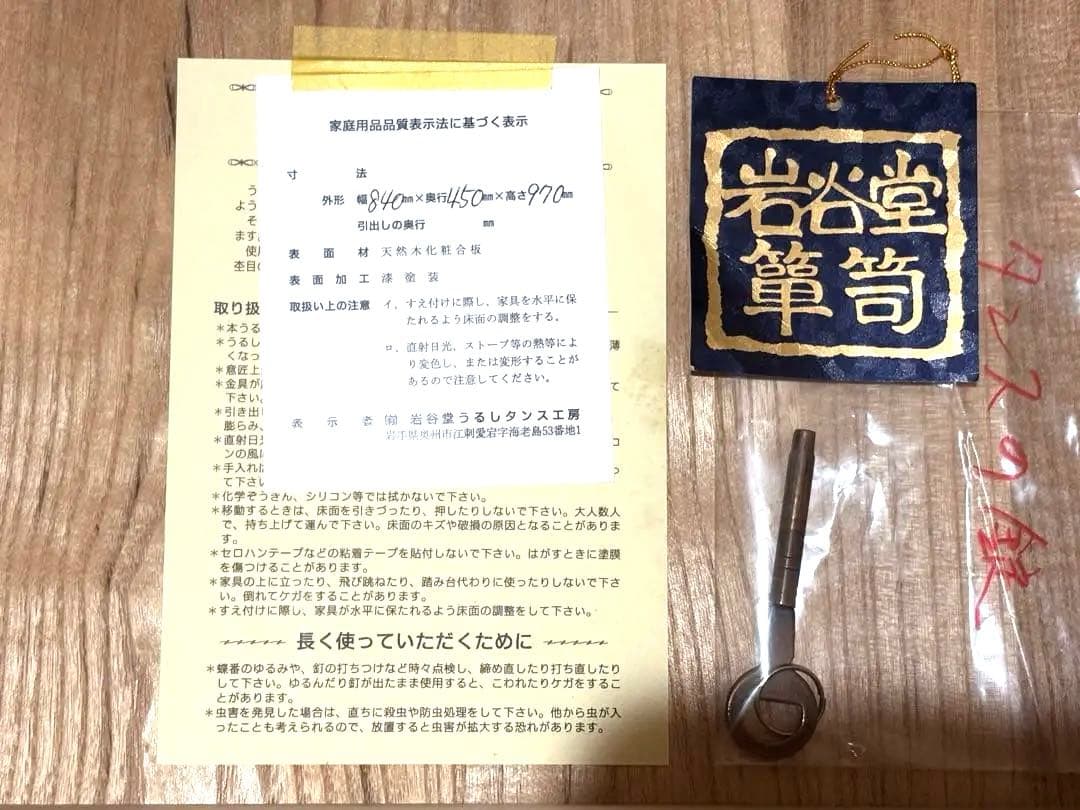 家庭用品品質表示法に基づく表示
寸法
外形 幅840㎜×奥行450㎜×高さ970㎜
引出しの奥行 ㎜
表面材 天然木化粧合板
表面加工 漆塗装
取扱い上の注意 イ、すえ付けに際し、家具を水平に保
たれるよう床面の調整をする。
ロ、直射日光、ストーブ等の熱等によ
り変色し、または変形することが
あるので注意してください。
表示者 ㈲ 岩谷堂うるしタンス工房
岩手県奥州市江刺愛宕字海老島53番地1
う
よう
そ
ます
使用
杢目の
取り扱
＊本うる
＊うるし
薄
くなっ
＊意匠上
＊金具が
て
下さい
＊引き出し
膨らみ、
＊直射日光
コ
ンの風に
＊手入れは
っ
て下さい
＊化学ぞうきん、シリコン等では拭かないで下さい。
＊移動するときは、床面を引きづったり、押したりしないで下さい。大人数人
で、持ち上げて運んで下さい。床面のキズや破損の原因となることがありま
す。
＊セロハンテープなどの粘着テープを貼付しないで下さい。はがすときに塗膜
を傷つけることがあります。
＊家具の上に立ったり、飛び跳ねたり、踏み台代わりに使ったりしないで下さ
い。倒れてケガをすることがあります。
＊すえ付けに際し、家具が水平に保たれるよう床面の調整をして下さい。
長く使っていただくために
＊蝶番のゆるみや、釘の打ちつけなど時々点検し、締め直したり打ち直したり
して下さい。ゆるんだり釘が出たまま使用すると、こわれたりケガをするこ
とがあります。
＊虫害を発見した場合は、直ちに殺虫や防虫処理をして下さい。他から虫が入
ったことも考えられるので、放置すると虫害が拡大する恐れがあります。
岩谷堂
箪笥
タンスの鍵